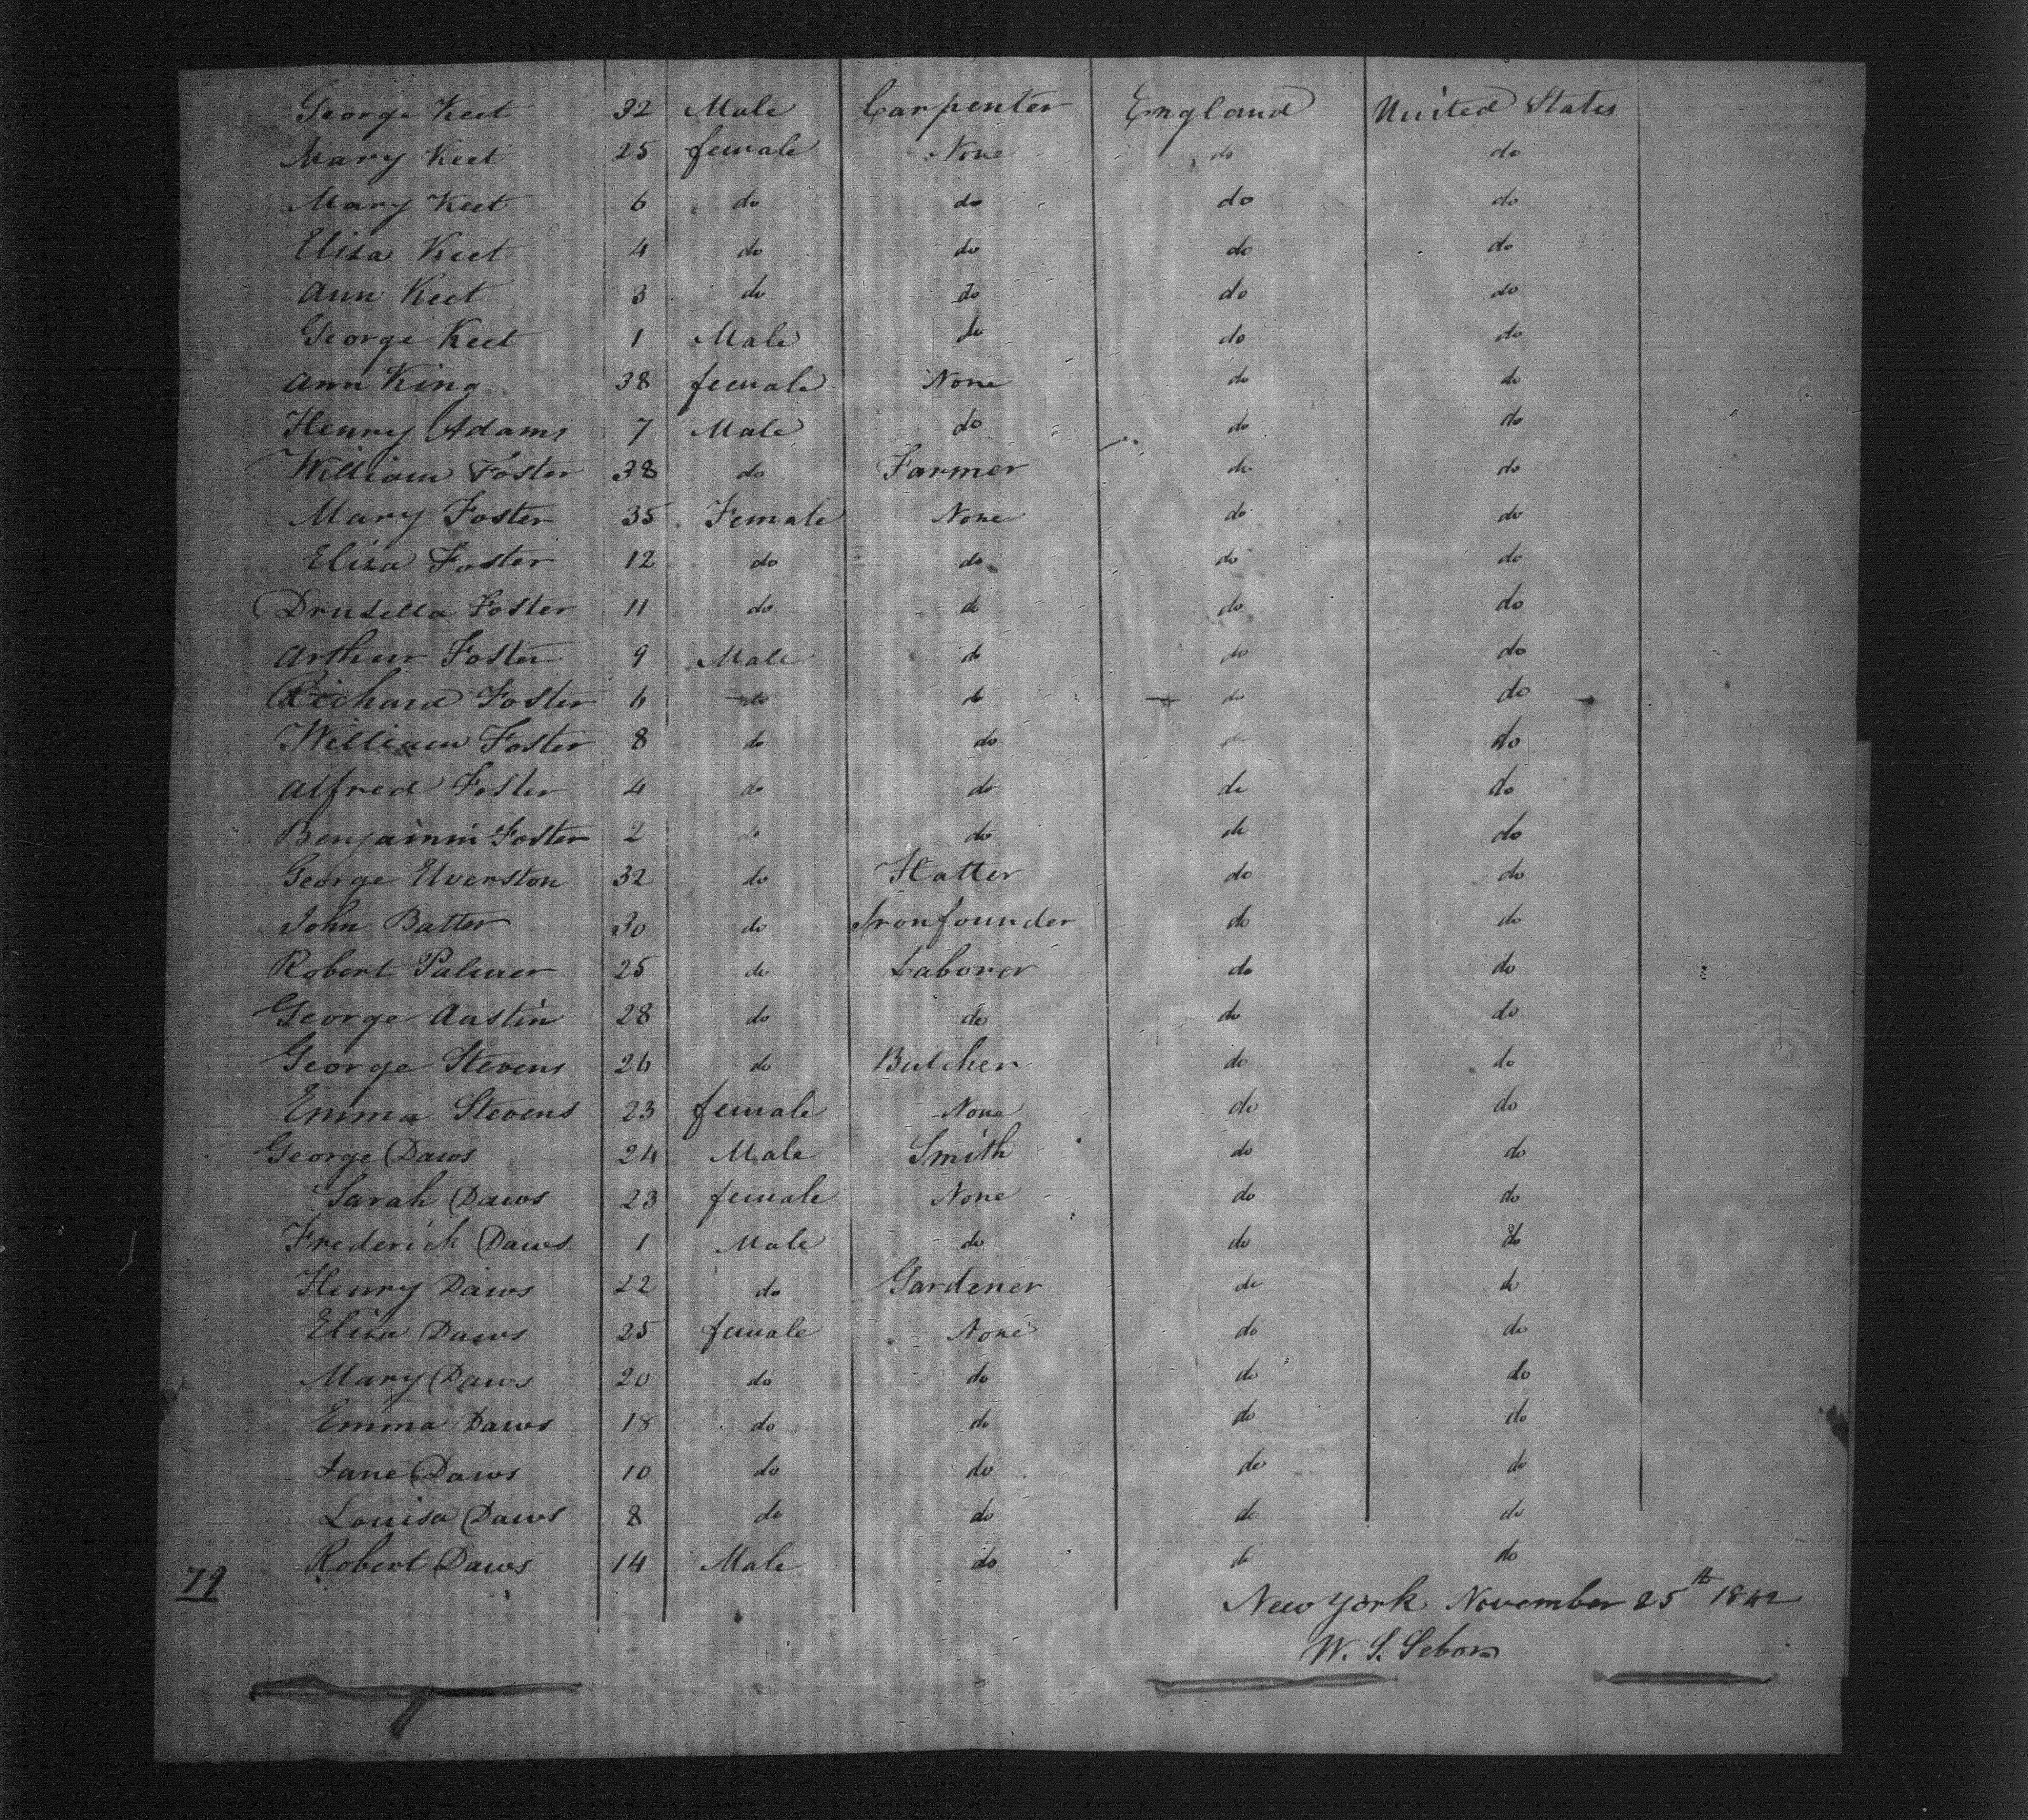 George Keet 32 Male Carpenter England United States
Mary Keet 25 female None do do
Mary Keet 6 do do do do
Eliza Keet 4 do do do do
Ann Keet 3 do do do do
George Keet 1 Male do do do
Ann King 38 female None do do
Henry Adams 7 Male do do do
William Foster 38 do Farmer do do
Mary Foster 35 Female None do do
Eliza Foster 12 do do do do
Drusella Foster 11 do do do do
Arthur Foster 9 Male do do do
Richard Foster 6 do do do do
William Foster 8 do do do do
Alfred Foster 4 do do do do
Benjamin Foster 2 do do do do
George Elverston 32 do Hatter do do
John Batter 30 do Ironfounder do do
Robert Palmer 25 do Laborer do do
George Austin 28 do do do do
George Stevens 26 do Butcher do do
Emma Stevens 23 female None do do
George Daws 24 Male Smith do do
Sarah Daws 23 female None do do
Frederich Daws 1 Male do do do
Henry Daws 22 do Gardener do do
Eliza Daws 25 female None do do
Mary Daws 20 do do do do
Emma Daws 18 do do do do
Jane Daws 10 do do do do
Louisa Daws 8 do do do do
Robert Daws 14 Male do do do
79
New York November 25th 1842
W. S. Sebor